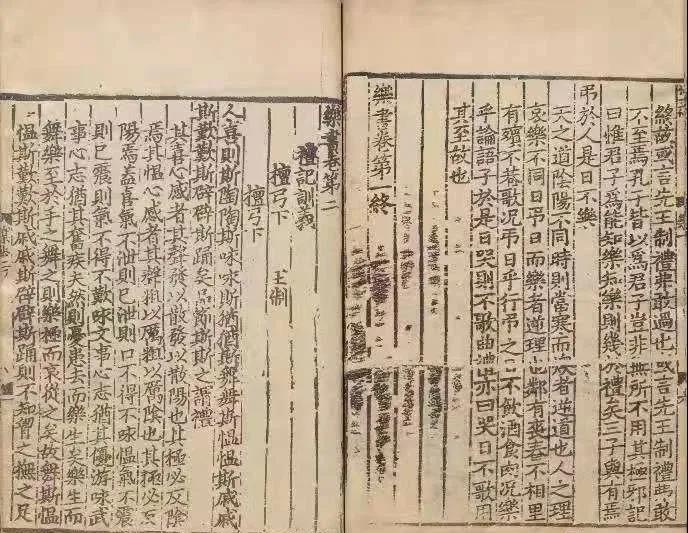 終故或言先王制禮弗敢過也或言先王制禮弗敢
不至焉孔子皆以為君子豈非無所不用其極邪記
曰惟君子為能知樂知樂則幾於禮矣三子與有焉
弔於人是日不樂
天之道陰陽不同時則當寒而燠者逆道也人之理
哀樂不同日弔日而樂者逆理也鄰有喪舂不相里
有殯不巷歌況弔日乎行弔之日不飲酒食肉況樂
乎論語子於是日哭則不歌曲禮亦曰哭日不歌用
其至故也
樂書卷第一終
樂書卷第二
禮記訓義
檀弓下 王制
檀弓下
人喜則斯陶陶斯咏咏斯猶猶斯舞舞斯慍慍斯戚戚
斯歎歎斯辟辟斯踊矣品節斯斯之謂禮
其喜心感者其聲發以散發以散陽也其極必反陰
焉其怒心感者其聲粗以厲粗以厲陰也其極必反
陽焉蓋喜氣不泄則已泄則口不得不咏慍氣不震
則已震則氣不得不歎咏文事心志猶其優游咏武
事心志猶其奮疾夫然則憂患去而樂生矣樂生而
舞樂至於手之舞之則樂極而哀從之矣故舞斯慍
慍斯歎歎斯戚戚斯辟辟斯踊則不知臂之撫之足